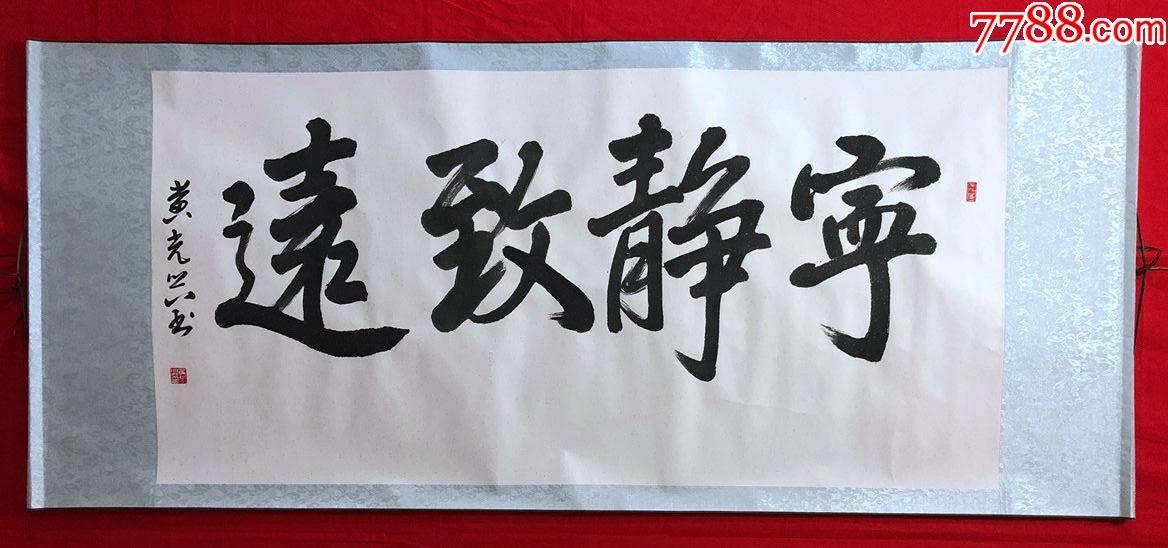 7788.com
寧静致遠
黄